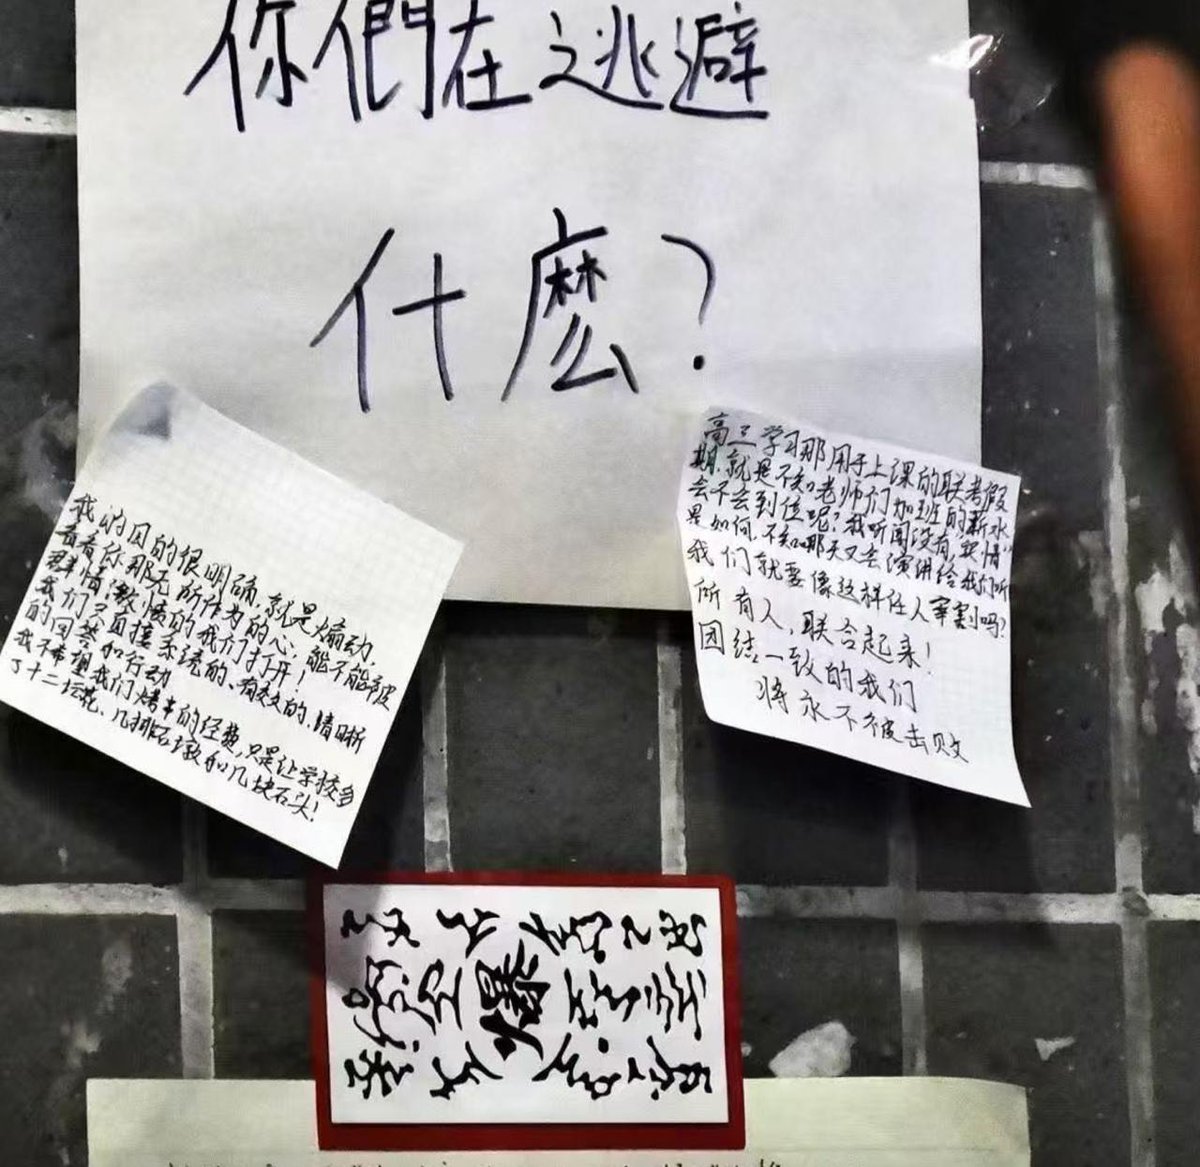 你們在逃避
什麼？
我的目的很明确，就是煽动，
看看你那无所作为的心，能不能被
群情激愤的我们打开！
我们要直接系统的、有效的、清晰
的回答和行动
我不希望我们烤串的经费，只是让学校多
了十二坛花、几排石墩和几块石头！
高三学习那用于上课的联考假
期，就是不知老师们加班的薪水
会不会到位呢？我听闻没有，实情
是如何，不知哪天又会演讲给我们听
我们就要像这样任人宰割吗？
所有人，联合起来！
团结一致的我们
将永不被击败